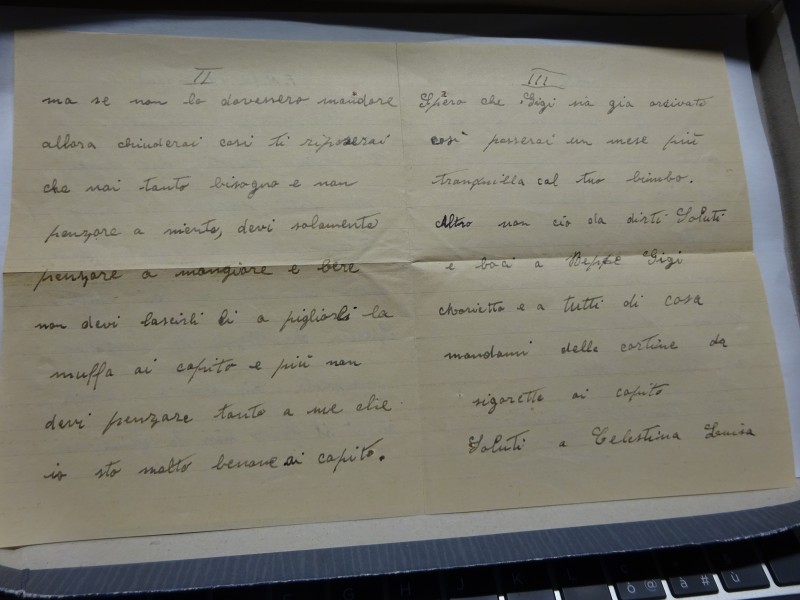 II
ma se non lo dovessero mandare
allora chiuderai cosi ti riposerai
che nai tanto bisogno e non
penzare a niente, devi solamente
penzare a mangiare e bere
non devi lascirli li a pigliarli la
muffa ai capito e più non
devi penzare tanto a me che
io sto molto benone ai capito.
III
Spero che Gigi sia gia arrivato
così passerai un mese più
tranquilla col tuo bimbo.
Altro non ciò da dirti Saluti
e baci a Beppe Gigi
Marietta e a tutti di casa
mandami delle cartine da
sigarette ai capito
Saluti a Celestina Luisa
H J K L
ò @ à # ù